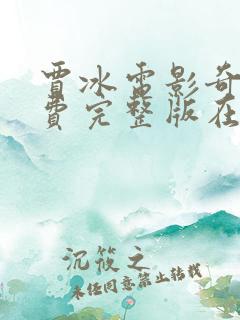 贾冰电影奇
费完整版在
沉筱之
未经同意禁止转载